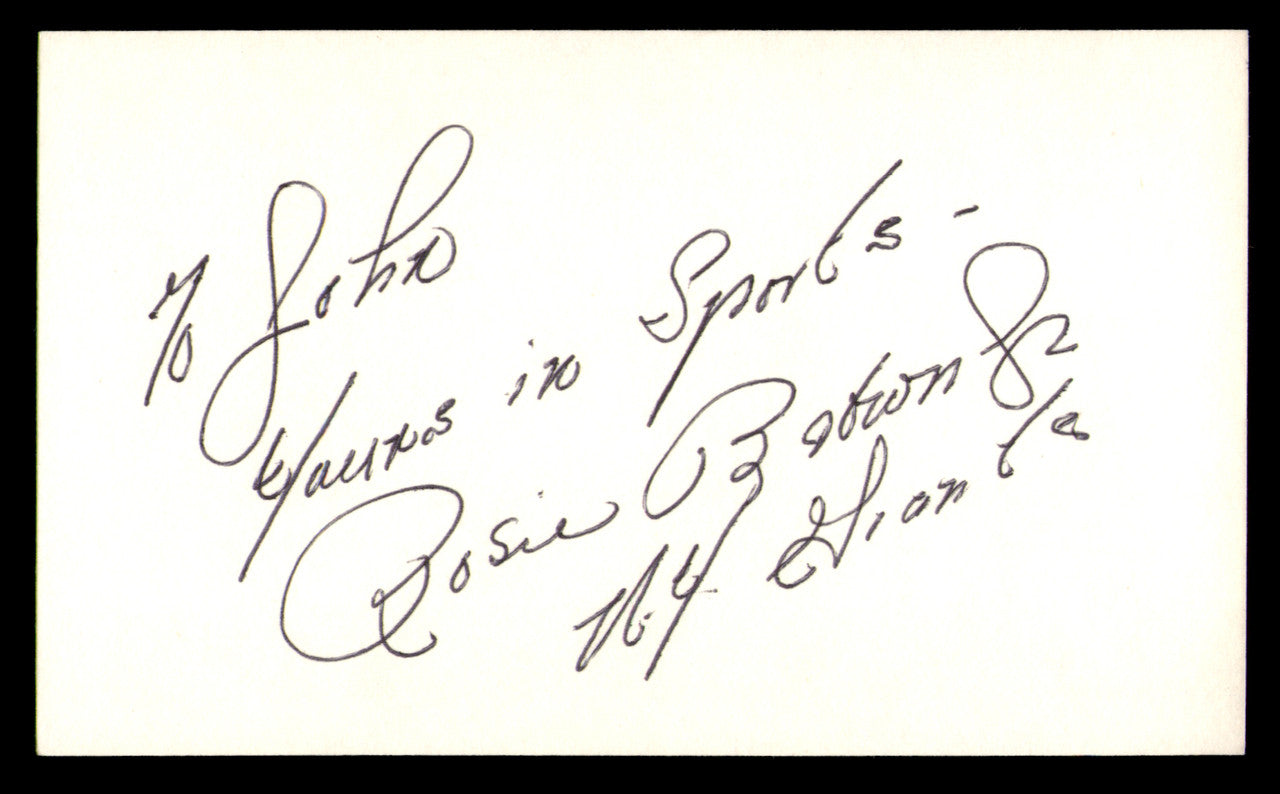 To John
Yours in Sports -
Rosie Brown Jr
N.Y. Giants